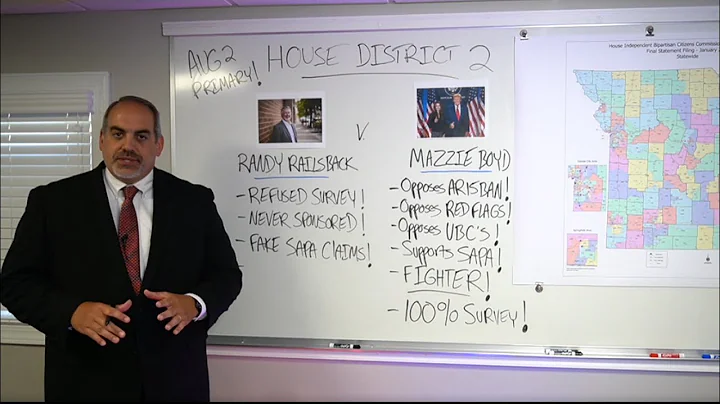 AUG 2
PRIMARY!
HOUSE DISTRICT 2
V
RANDY RAILSBACK
- REFUSED SURVEY!
- NEVER SPONSORED!
- FAKE SAPA CLAIMS!
-
MAZZIE BOYD
- OPPOSES AR15 BAN!
- OPPOSES RED FLAGS!
- OPPOSES UBC'S!
- SUPPORTS SAPA!
- FIGHTER!
- 100% SURVEY!
House Independent Bipartisan Citizens Commiss
Final Statement Filing - January
Statewide